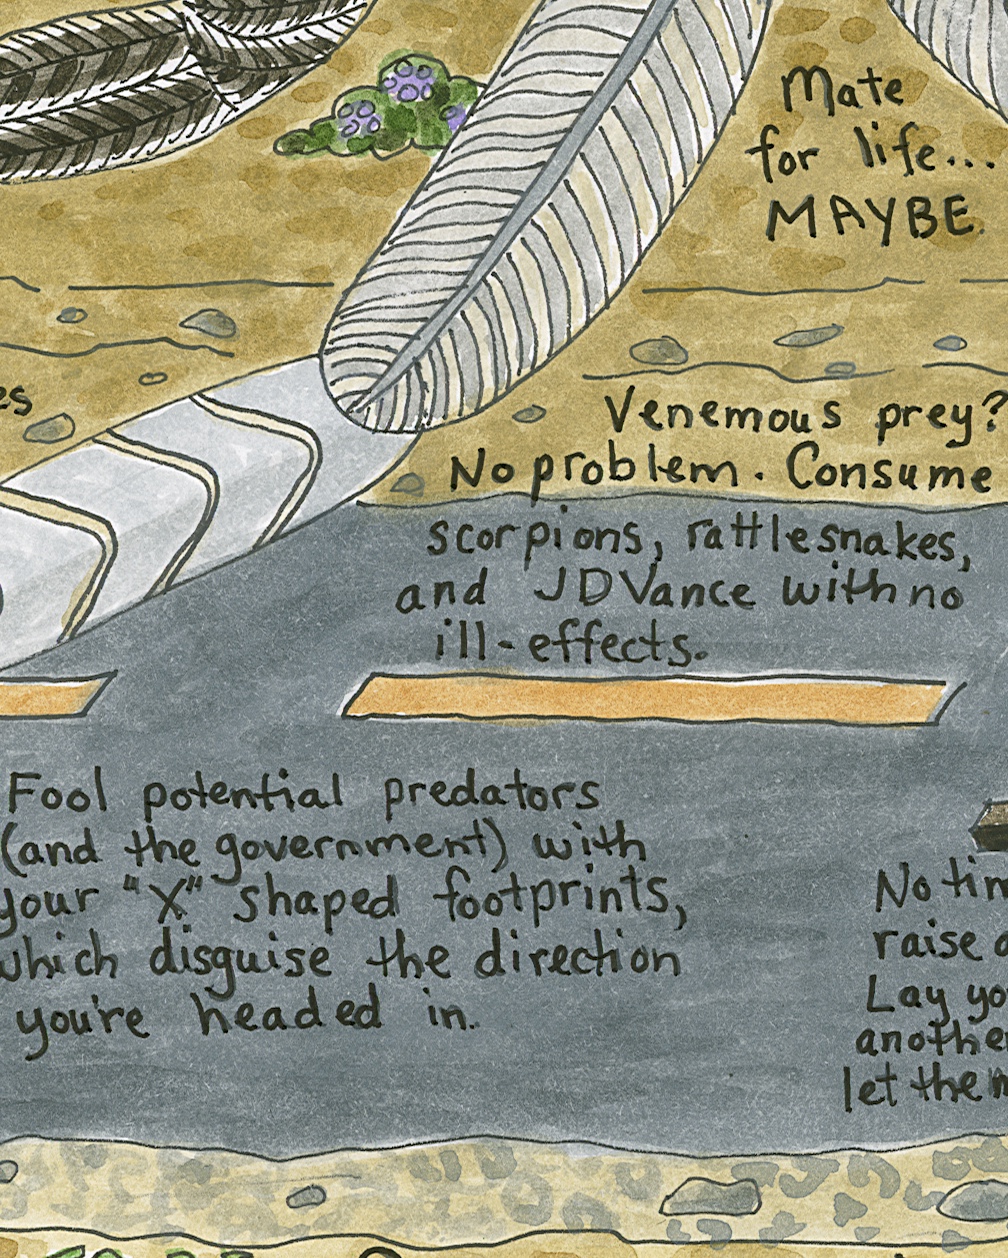 Mate
for life...
MAYBE.
es
Venemous prey?
No problem. Consume
scorpions, rattlesnakes,
and JD Vance with no
ill-effects.
Fool potential predators
(and the government) with
your "X" shaped footprints,
which disguise the direction
you're headed in.
No tim
raise a
Lay yo
another
let them